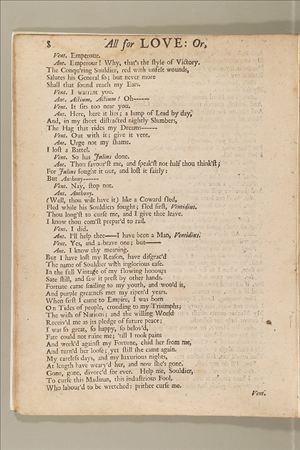 8 All for LOVE: Or,
Vent. Emperour.
Ant. Emperour! Why, that's the style of Victory.
The Conqu'ring Souldier, red with unfelt wounds,
Salutes his General so: but never more
Shall that sound reach my Ears.
Vent. I warrant you.
Ant. Actium, Actium! Oh——
Vent. It sits too near you.
Ant. Here, here it lies; a lump of Lead by day,
And, in my short distracted nightly Slumbers,
The Hag that rides my Dreams——
Vent. Out with it; give it vent.
Ant. Urge not my shame.
I lost a Battel.
Vent. So has Julius done.
Ant. Thou favour'st me, and speak'st not half thou think'st;
For Julius fought it out, and lost it fairly:
But Anthony——
Vent. Nay, stop not.
Ant. Anthony,
(Well, thou wilt have it) like a Coward fled,
Fled while his Souldiers fought; fled first, Ventidius.
Thou long'st to curse me, and I give thee leave.
I know thou com'st prepar'd to rail.
Vent. I did.
Ant. I'll help thee—I have been a Man, Ventidius.
Vent. Yes, and a brave one; but——
Ant. I know thy meaning.
But I have lost my Reason, have disgrac'd
The name of Souldier with inglorious ease.
In the full Vintage of my flowing honours
Sate still, and saw it prest by other hands.
Fortune came smiling to my youth, and woo'd it,
And purple greatness met my ripen'd years.
When first I came to Empire, I was born
On Tides of people, crowding to my Triumphs;
The wish of Nations; and the willing World
Receiv'd me as its pledge of future peace;
I was so great, so happy, so belov'd,
Fate could not ruine me; 'till I took pains
And work'd against my Fortune, chid her from me,
And turn'd her loose; yet still she came again.
My careless days, and my luxurious nights,
At length have weary'd her, and now she's gone.
Gone, gone, divorc'd for ever. Help me, Souldier,
To curse this Madman, this industrious Fool,
Who labour'd to be wretched: prithee curse me.
Vent.